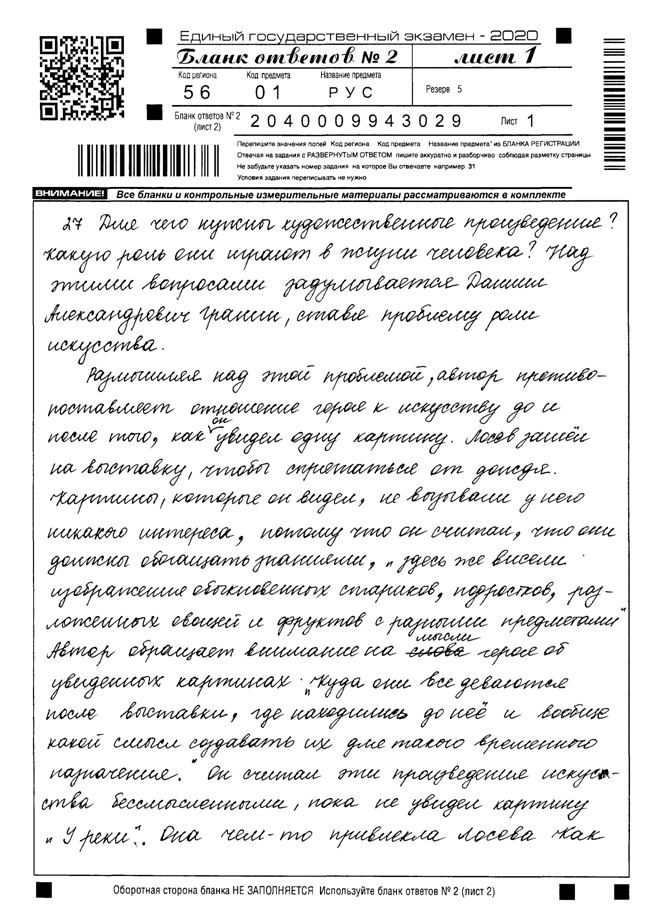 Единый государственный экзамен - 2020
Бланк ответов № 2 лист 1
Код региона Код предмета Название предмета
56 01 РУС Резерв 5
Бланк ответов № 2 (лист 2) 2040009943029 Лист 1
Перепишите значения полей Код региона Код предмета Название предмета" из БЛАНКА РЕГИСТРАЦИИ
Отвечая на задания с РАЗВЕРНУТЫМ ОТВЕТОМ пишите аккуратно и разборчиво соблюдая разметку страницы
Не забудьте указать номер задания на которое Вы отвечаете например 31
Условия задания переписывать не нужно
ВНИМАНИЕ! Все бланки и контрольные измерительные материалы рассматриваются в комплекте
27 Для чего нужны художественные произведение?
Какую роль они играют в жизни человека? Над
этими вопросами задумывается Даниил
Александрович Гранин, ставя проблему роли
искусства.
Размышляя над этой проблемой, автор противо-
поставляет отношение героя к искусству до и
после того, как он увидел одну картину. Лосев зашёл
на выставку, чтобы спрятаться от дождя.
Картины, которые он видел, не вызывали у него
никакого интереса, потому что он считал, что они
должны обогащать знаниями, „здесь же висели
изображение обыкновенных стариков, подростков, раз-
ложенных овощей и фруктов с разными предметами"
Автор обращает внимание на слова мысли героя об
увиденных картинах: „Куда они все деваются
после выставки, где находились до неё и вообще
какой смысл создавать их для такого временного
назначения." Он считал эти произведения искусс-
тва бессмысленными, пока не увидел картину
„У реки". Она чем-то привлекла Лосева как
Оборотная сторона бланка НЕ ЗАПОЛНЯЕТСЯ Используйте бланк ответов № 2 (лист 2)